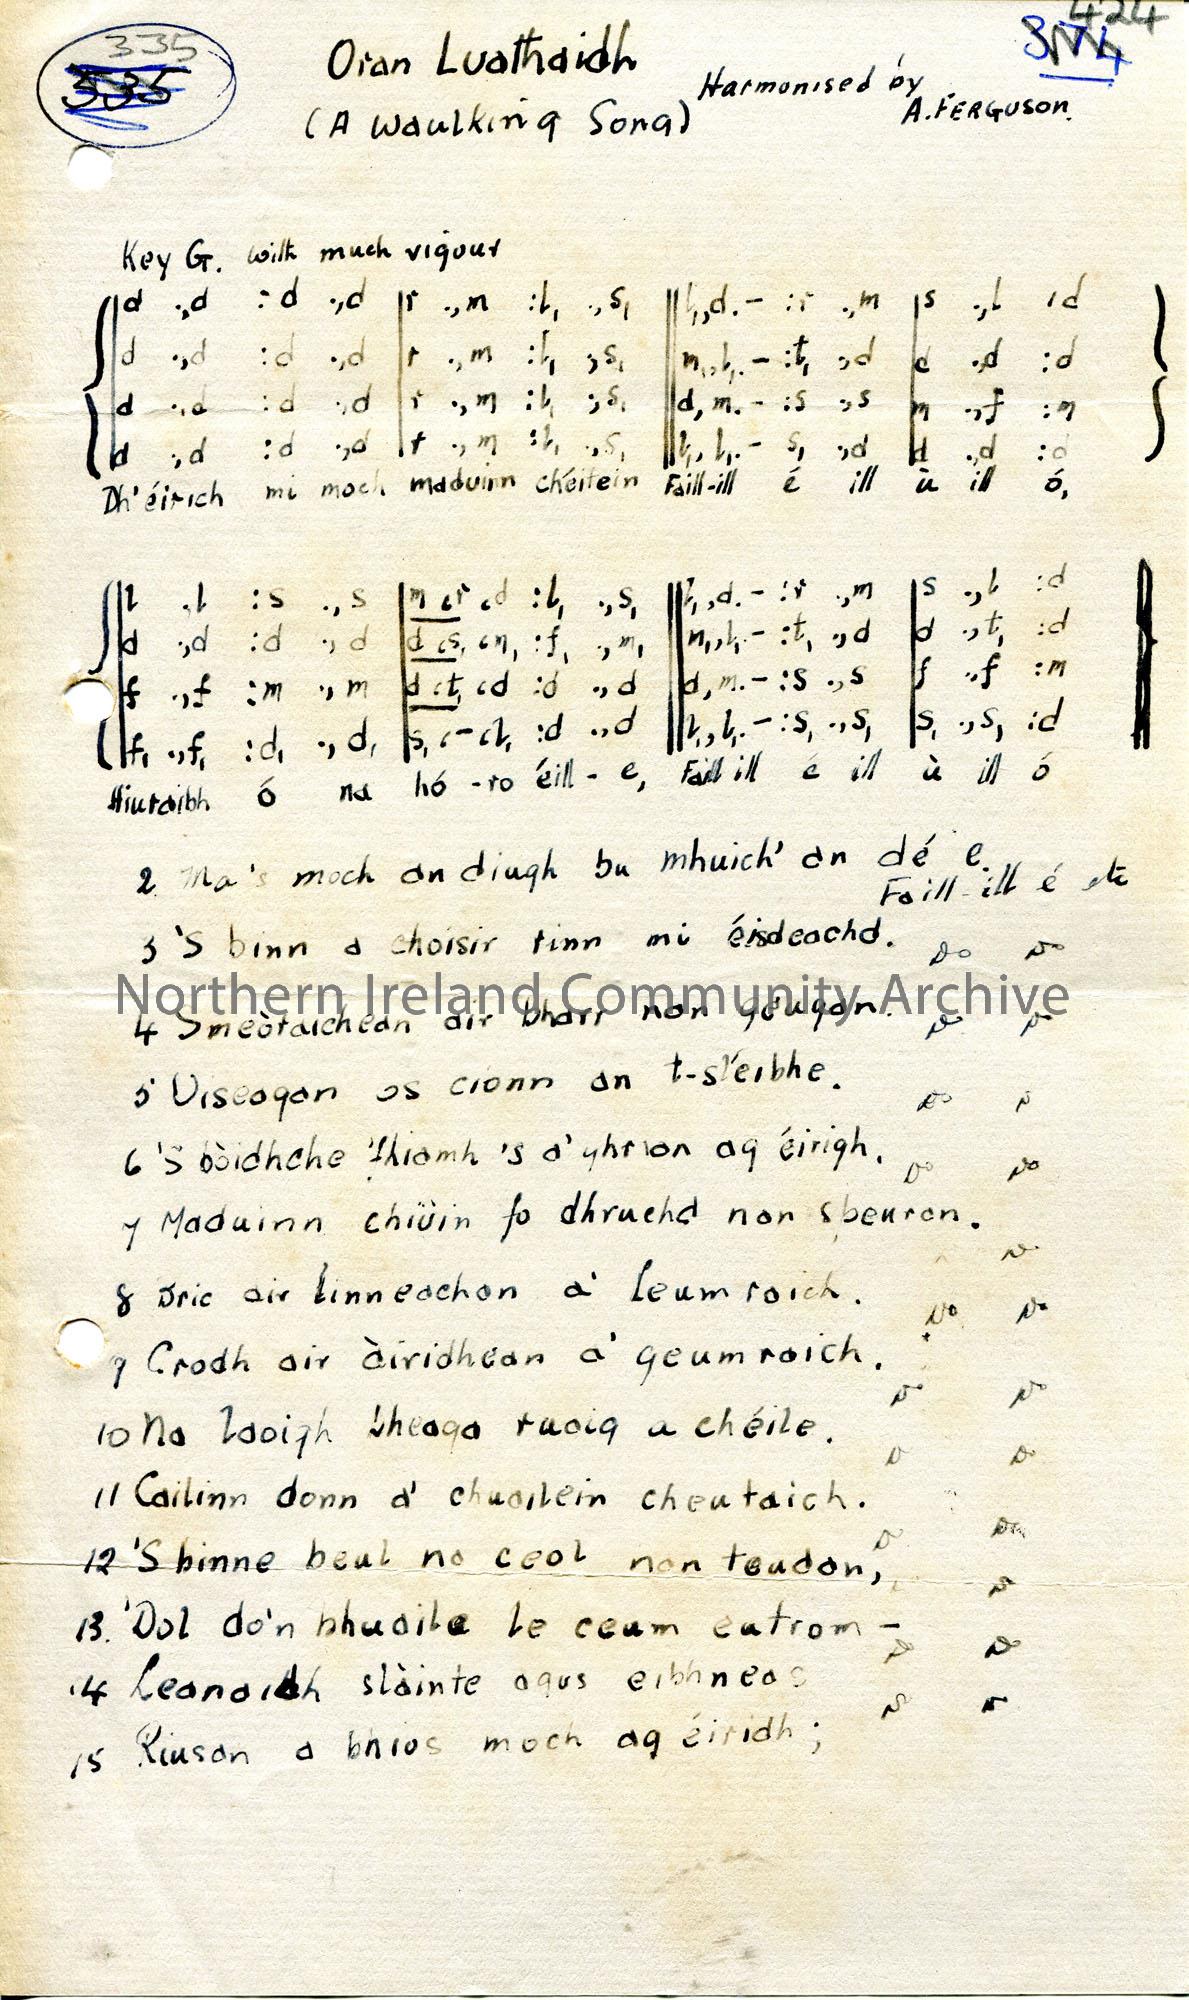 335
335
424
374
Oran Luathaidh
(A Waulking Song)
Harmonised by
A. FERGUSON.
Key G. with much vigour
d .,d :d .,d | r .,m :l, .,s, || l,,d.- :r .,m | s .,l :d
d .,d :d .,d | r .,m :l, .,s, || m,,l,.- :t, .,d | d .,d :d
d .,d :d .,d | r .,m :l, .,s, || d,m.- :s .,s | m .,f :m
d .,d :d .,d | r .,m :l, .,s, || l,,l,.- s, .,d | d .,d :d
Dh'éirich mi moch maduinn chéitein Faill-ill é ill ù ill ó,
l .,l :s .,s | m r d :l, .,s, || l,,d.- :r .,m | s .,l :d
d .,d :d .,d | d s, m, :f, .,m, || m,,l,.- :t, .,d | d .,t, :d
f .,f :m .,m | d t, d :d .,d || d,m.- :s .,s | f .,f :m
f, .,f, :d, .,d, | s, - l, :d .,d || l,,l,.- :s, .,s, | s, .,s, :d
Hiuraibh ó na hó-ro éill-e, Faill ill é ill ù ill ó
2 Ma's moch an diugh bu mhuich' an dé e.
Faill-ill é etc
3 'S binn a choisir rinn mi éisdeachd. Do Do
Northern Ireland Community Archive
4 Smeòraichean air bharr nan geugan. Do Do
5 Uiseagan os cionn an t-sléibhe.
6 'S bòidhche fhiamh 's a' ghrian ag éirigh. Do Do
7 Maduinn chiùin fo dhruchd nan speuran.
8 Bric air linneachan a' leumraich. Do Do
9 Crodh air àiridhean a' geumraich.
10 Na laoigh bheaga ruaig a chéile.
11 Cailinn donn a' chuailein cheutaich.
12 'S binne beul na ceol nan teudan,
13. 'Dol do'n bhuaile le ceum eutrom -
14 Leanaidh slàinte agus eibhneas
15 Riusan a bhios moch ag éiridh;